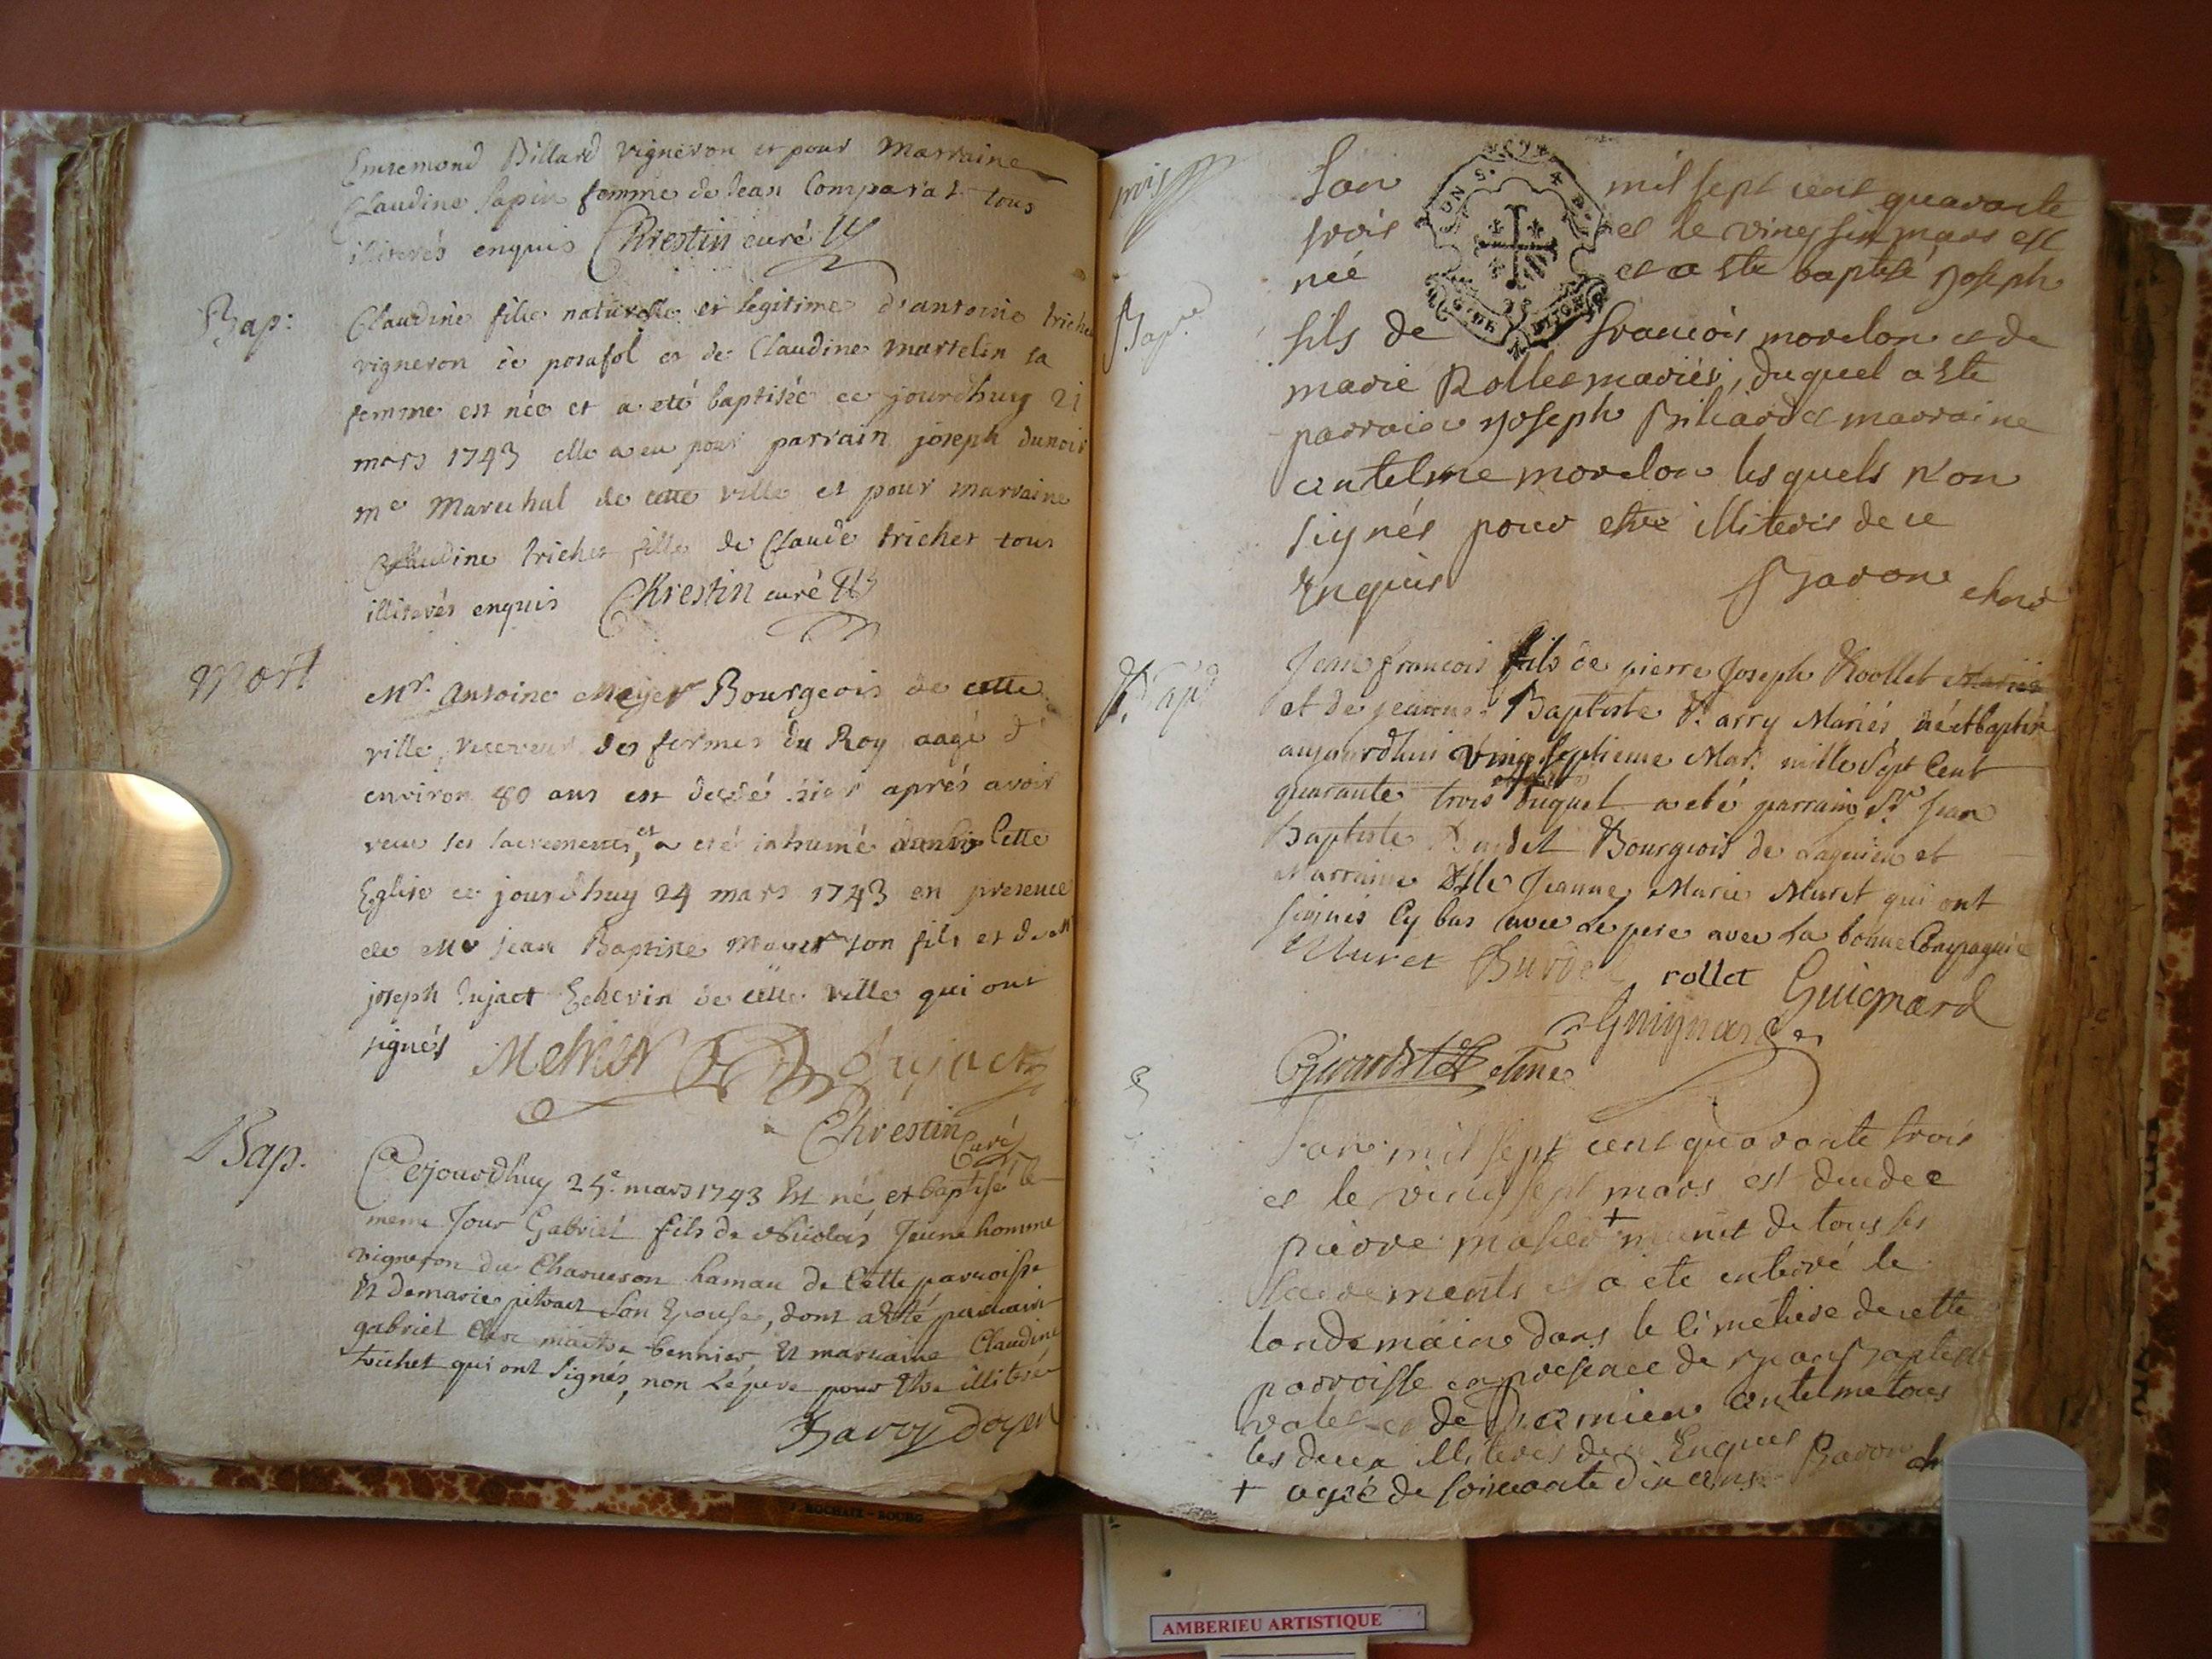 Billard vigneron et pour Marraine
Claudine Sapin femme de Jean Comparat tous
illiterés enquis Chrestin curé
Bap:
Claudine fille naturelle et legitime d'antoine triche
vigneron de posafol et de Claudine Martelin sa
femme est née et a eté baptisée ce jourdhuy 21
mars 1743 elle a eu pour parrain joseph dunoir
me Marechal de cette ville et pour marraine
Claudine trichet fille de Claude trichet tous
illiterés enquis Chrestin curé
Mort
Mr. Antoine Meyer Bourgeois de cette
ville, receveur des fermes du Roy aagé d'
environ 80 ans est decedé hier aprés avoir
receu ses sacrements, et a eté inhumé Cette
Eglise ce jourdhuy 24 mars 1743 en presence
de Jean Baptiste son fils et de
joseph dujact Echevin de cette ville qui ont
signés dujact
Chrestin Curé
Bap.
Cejourdhuy 25e. mars 1743 Est né, et baptisé le
meme Jour Gabriel fils de Nicolas Jeune homme
vigneron du Charveron hamau de Cette parroisse
Et de marie pitrat Son Epouse, dont a Esté parrain
gabriel maitre Et marraine Claudine
trichet qui ont signés, non Le pere pour Etre illiteré
Barry doyen
Bap.
Lan mil sept cent quarante
trois et le vingt six mars est
née et a ete baptisé Joseph
fils de francois morelon et de
marie Rollet mariés, duquel a ete
parrain Joseph Billiard et marraine
antelme morelon lesquels n'on
signés pour etre illiterés de ce
Enquis Baron
Bap
Jean francois fils de pierre Joseph Roollet Mariés
et de jeanne Baptiste Barry Mariés, né et baptisé
aujourdhui vingt septieme Mar. mille Sept Cent
quarante trois duquel a eté parrain Sr. Jean
Baptiste Burdet Bourgeois de Lagnieu et
Marraine Dlle Jeanne Marie Muret qui ont
signés Cy bas avec Le pere avec La bonne Compagnie
Muret Burdet rollet Guignard
Guignard
Lan mil sept cent quarante trois
et le vingt sept mars est decedee
pierre + munit de tous ses
Sacrements et a ete enterré le
landemain dans le Cimetiere de cette
parroisse en presence de Jean Baptiste
et de antelme tous
les deux illiteres de ce Enquis Baron
+ agée de soixante dix ans
J. ROCHAIX - BOURG
AMBERIEU ARTISTIQUE